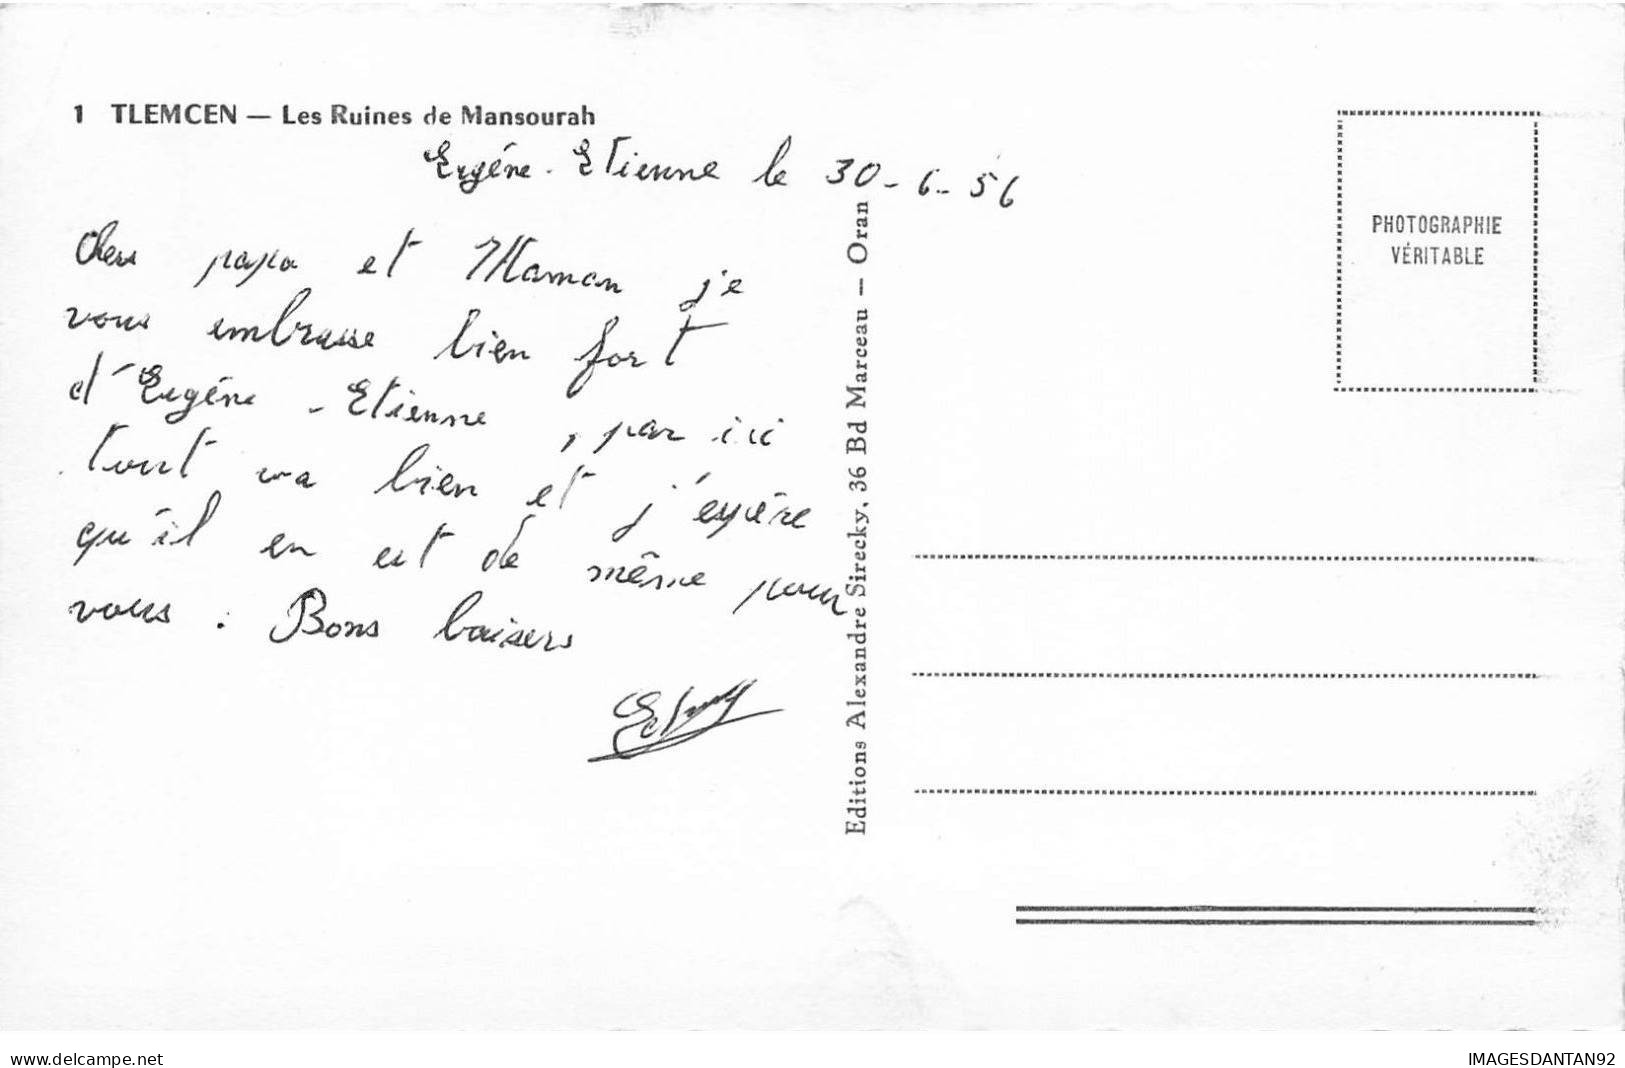 1 TLEMCEN — Les Ruines de Mansourah
Eugéne - Etienne le 30-6-56
Cher papa et Maman je
vous embrasse bien fort
d'Eugéne - Etienne, par ici
tout va bien et j'espére
qu'il en est de même pour
vous. Bons baisers
Editions Alexandre Sirecky, 36 Bd Marceau — Oran
PHOTOGRAPHIE
VÉRITABLE
www.delcampe.net
IMAGESDANTAN92